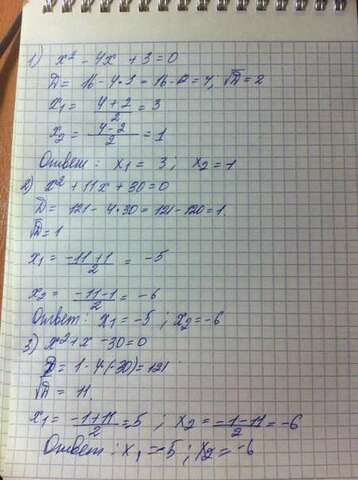 1) x² - 4x + 3 = 0
D = 16 - 4·3 = 16 - 12 = 4, √D = 2
x₁ = (4 + 2)/2 = 3
x₂ = (4 - 2)/2 = 1
Ответ: x₁ = 3; x₂ = 1
2) x² + 11x + 30 = 0
D = 121 - 4·30 = 121 - 120 = 1
√D = 1
x₁ = (-11 + 1)/2 = -5
x₂ = (-11 - 1)/2 = -6
Ответ: x₁ = -5; x₂ = -6
3) x² + x - 30 = 0
D = 1 - 4·(-30) = 121
√D = 11
x₁ = (-1 + 11)/2 = 5; x₂ = (-1 - 11)/2 = -6
Ответ: x₁ = 5; x₂ = -6